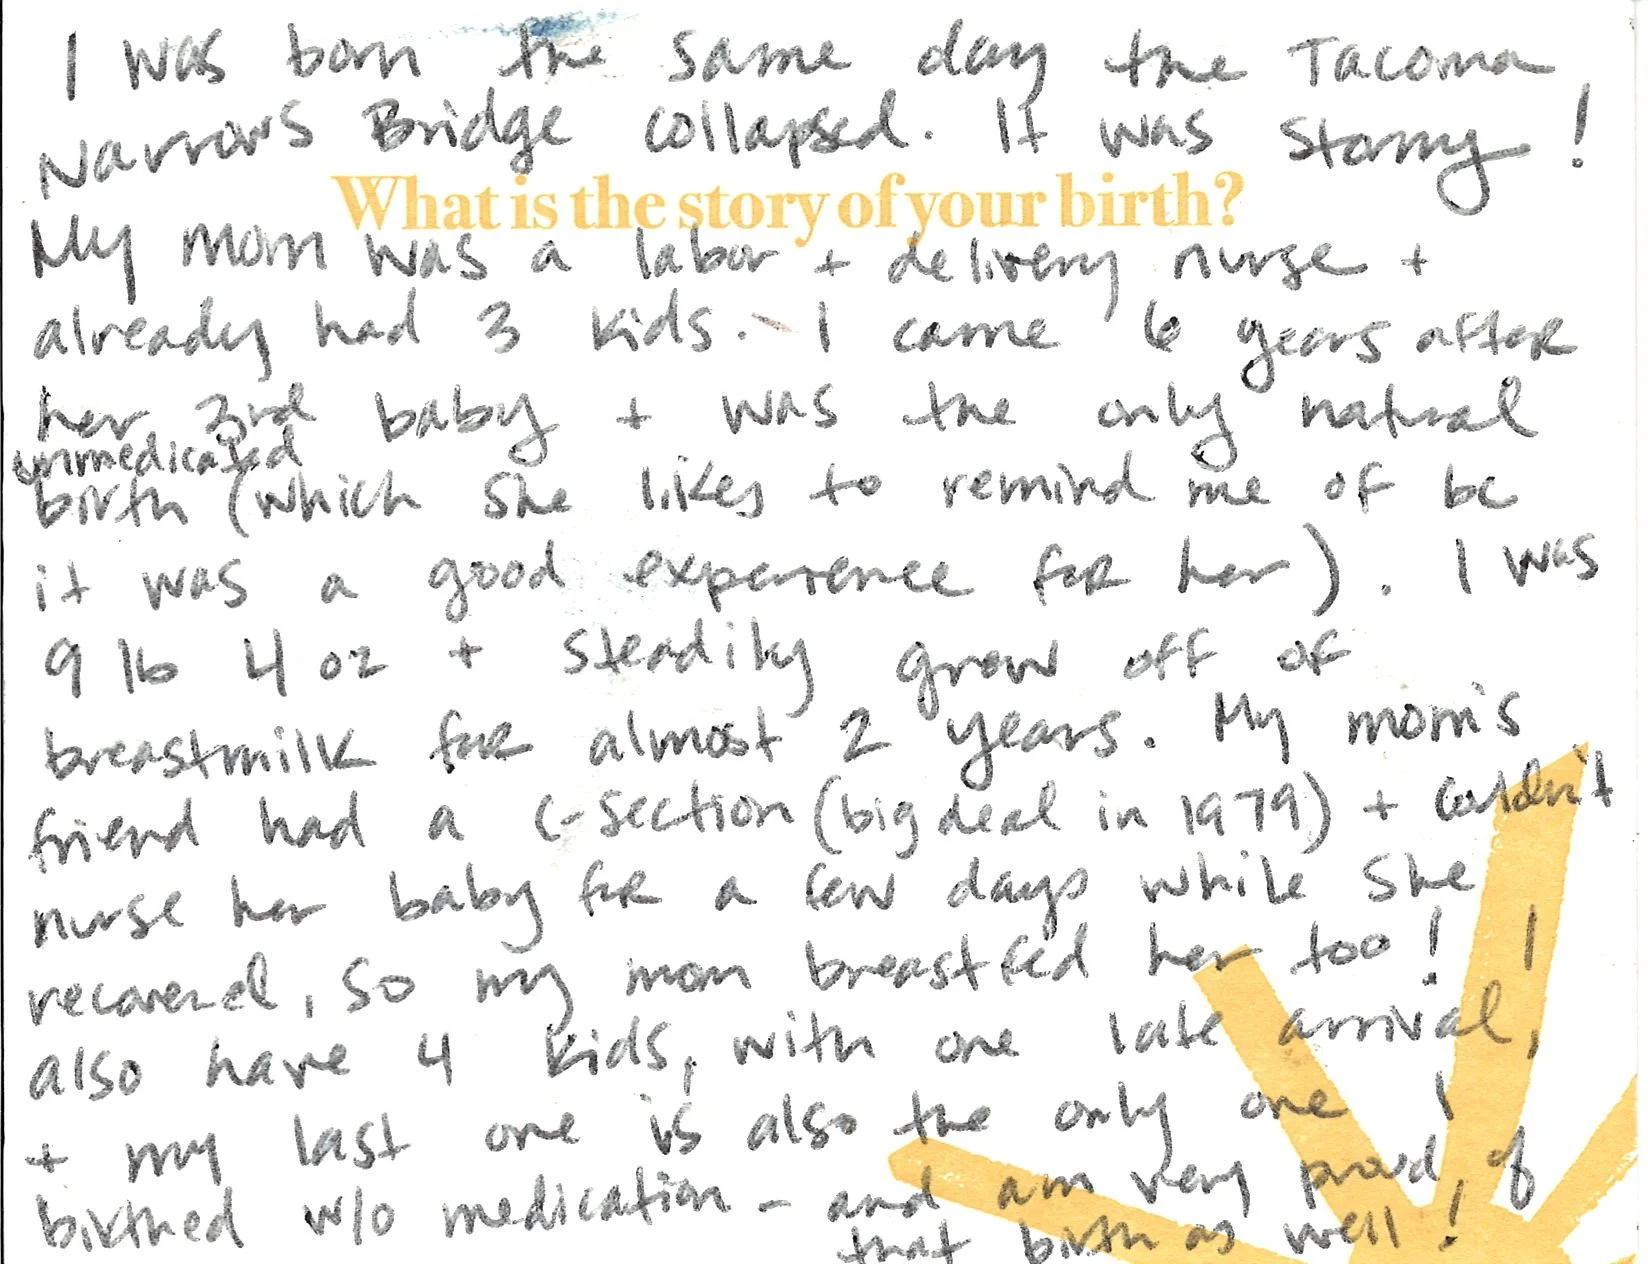 I was born the same day the Tacoma
Narrows Bridge collapsed. It was stormy!
What is the story of your birth?
My mom was a labor + delivery nurse +
already had 3 kids. I came 6 years after
her 3rd baby + was the only natural
unmedicated
birth (which she likes to remind me of bc
it was a good experience for her). I was
9 lb 4 oz + steadily grew off of
breastmilk for almost 2 years. My mom's
friend had a C-section (big deal in 1979) + couldn't
nurse her baby for a few days while she
recovered, so my mom breastfed her too! I
also have 4 kids, with one late arrival,
+ my last one is also the only one I
birthed w/o medication - and am very proud of
that birth as well!